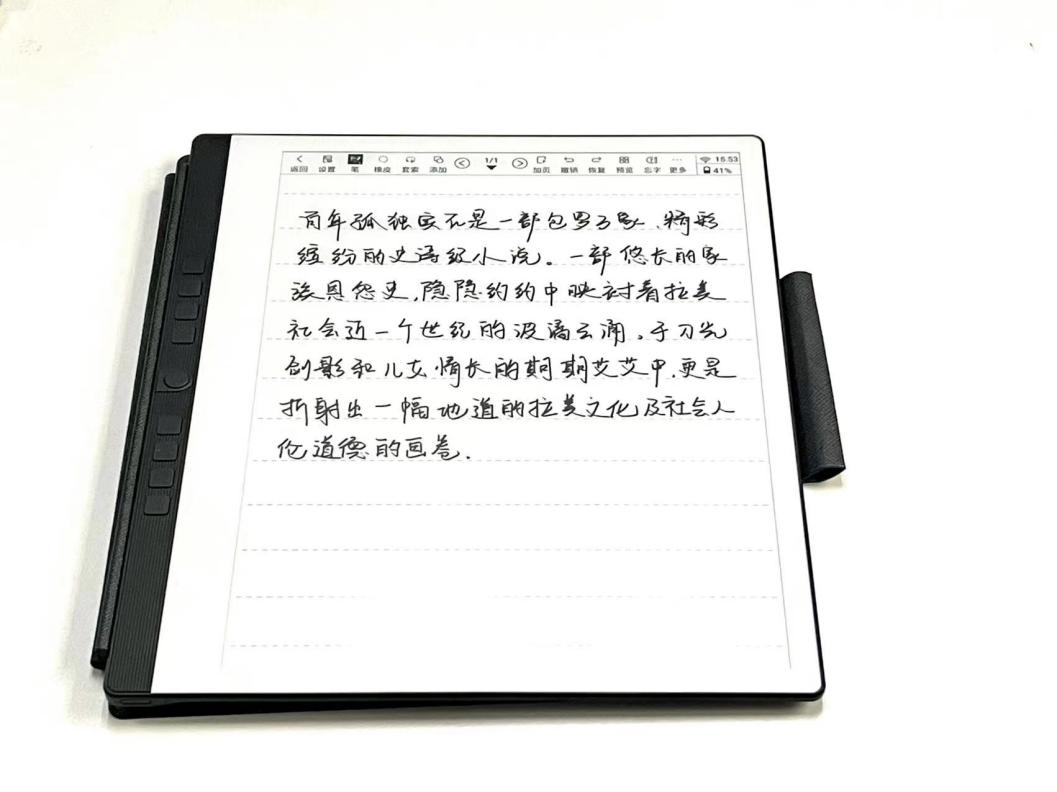 返回 设置 笔 橡皮 套索 添加 1/1 加页 撤销 恢复 预览 忘字 更多 15:53
41%
百年孤独实在是一部包罗万象、精彩
缤纷的史诗级小说。一部悠长的家
族恩怨史,隐隐约约中映衬着拉美
社会近一个世纪的波谲云涌,于刀光
剑影和儿女情长的期期艾艾中,更是
折射出一幅地道的拉美文化及社会人
伦道德的画卷.